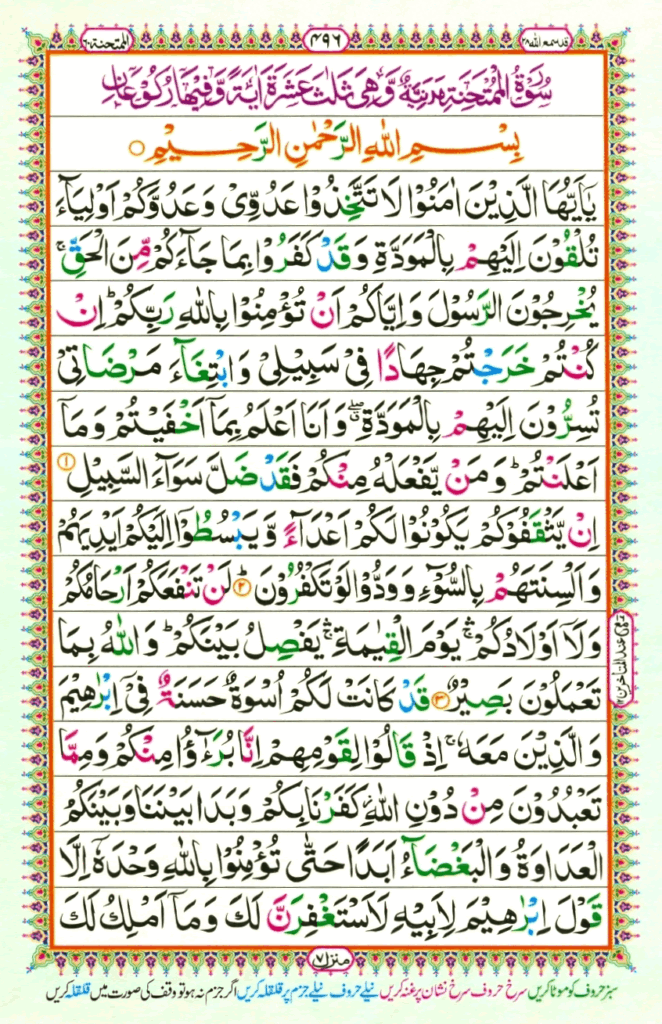 قد سمع اللہ ٢٨
٤٩٦
الممتحنة ٦٠
سُوْرَةُ الْمُمْتَحِنَةِ مَدَنِيَّةٌ وَّهِيَ ثَلٰثَ عَشْرَةَ اٰيَةً وَّفِيْهَا رُكُوْعَانِ
بِسْمِ اللّٰهِ الرَّحْمٰنِ الرَّحِيْمِ ○
يٰۤاَيُّهَا الَّذِيْنَ اٰمَنُوْا لَا تَتَّخِذُوْا عَدُوِّيْ وَعَدُوَّكُمْ اَوْلِيَآءَ
تُلْقُوْنَ اِلَيْهِمْ بِالْمَوَدَّةِ وَقَدْ كَفَرُوْا بِمَا جَآءَكُمْ مِّنَ الْحَقِّ ۚ
يُخْرِجُوْنَ الرَّسُوْلَ وَاِيَّاكُمْ اَنْ تُؤْمِنُوْا بِاللّٰهِ رَبِّكُمْ ؕ اِنْ
كُنْتُمْ خَرَجْتُمْ جِهَادًا فِيْ سَبِيْلِيْ وَابْتِغَآءَ مَرْضَاتِيْ
تُسِرُّوْنَ اِلَيْهِمْ بِالْمَوَدَّةِ ۖ وَاَنَا اَعْلَمُ بِمَاۤ اَخْفَيْتُمْ وَمَاۤ
اَعْلَنْتُمْ ؕ وَمَنْ يَّفْعَلْهُ مِنْكُمْ فَقَدْ ضَلَّ سَوَآءَ السَّبِيْلِ ١
اِنْ يَّثْقَفُوْكُمْ يَكُوْنُوْا لَكُمْ اَعْدَآءً وَّيَبْسُطُوْۤا اِلَيْكُمْ اَيْدِيَهُمْ
وَاَلْسِنَتَهُمْ بِالسُّوْٓءِ وَوَدُّوْا لَوْ تَكْفُرُوْنَ ٢ لَنْ تَنْفَعَكُمْ اَرْحَامُكُمْ
وَلَاۤ اَوْلَادُكُمْ ۛ يَوْمَ الْقِيٰمَةِ ۛ يَفْصِلُ بَيْنَكُمْ ؕ وَاللّٰهُ بِمَا
تَعْمَلُوْنَ بَصِيْرٌ ٣ قَدْ كَانَتْ لَكُمْ اُسْوَةٌ حَسَنَةٌ فِيْۤ اِبْرٰهِيْمَ
وَالَّذِيْنَ مَعَهٗ ۚ اِذْ قَالُوْا لِقَوْمِهِمْ اِنَّا بُرَءٰٓؤُا مِنْكُمْ وَمِمَّا
تَعْبُدُوْنَ مِنْ دُوْنِ اللّٰهِ ؗ كَفَرْنَا بِكُمْ وَبَدَا بَيْنَنَا وَبَيْنَكُمُ
الْعَدَاوَةُ وَالْبَغْضَآءُ اَبَدًا حَتّٰى تُؤْمِنُوْا بِاللّٰهِ وَحْدَهٗۤ اِلَّا
قَوْلَ اِبْرٰهِيْمَ لِاَبِيْهِ لَاَسْتَغْفِرَنَّ لَكَ وَمَاۤ اَمْلِكُ لَكَ
منزل ٧
سبز حروف کو موٹا کریں سرخ حروف سرخ نشان پر غنہ کریں نیلے حروف نیلے جزم پر قلقلہ کریں اگر جزم نہ ہو تو وقف کی صورت میں قلقلہ کریں